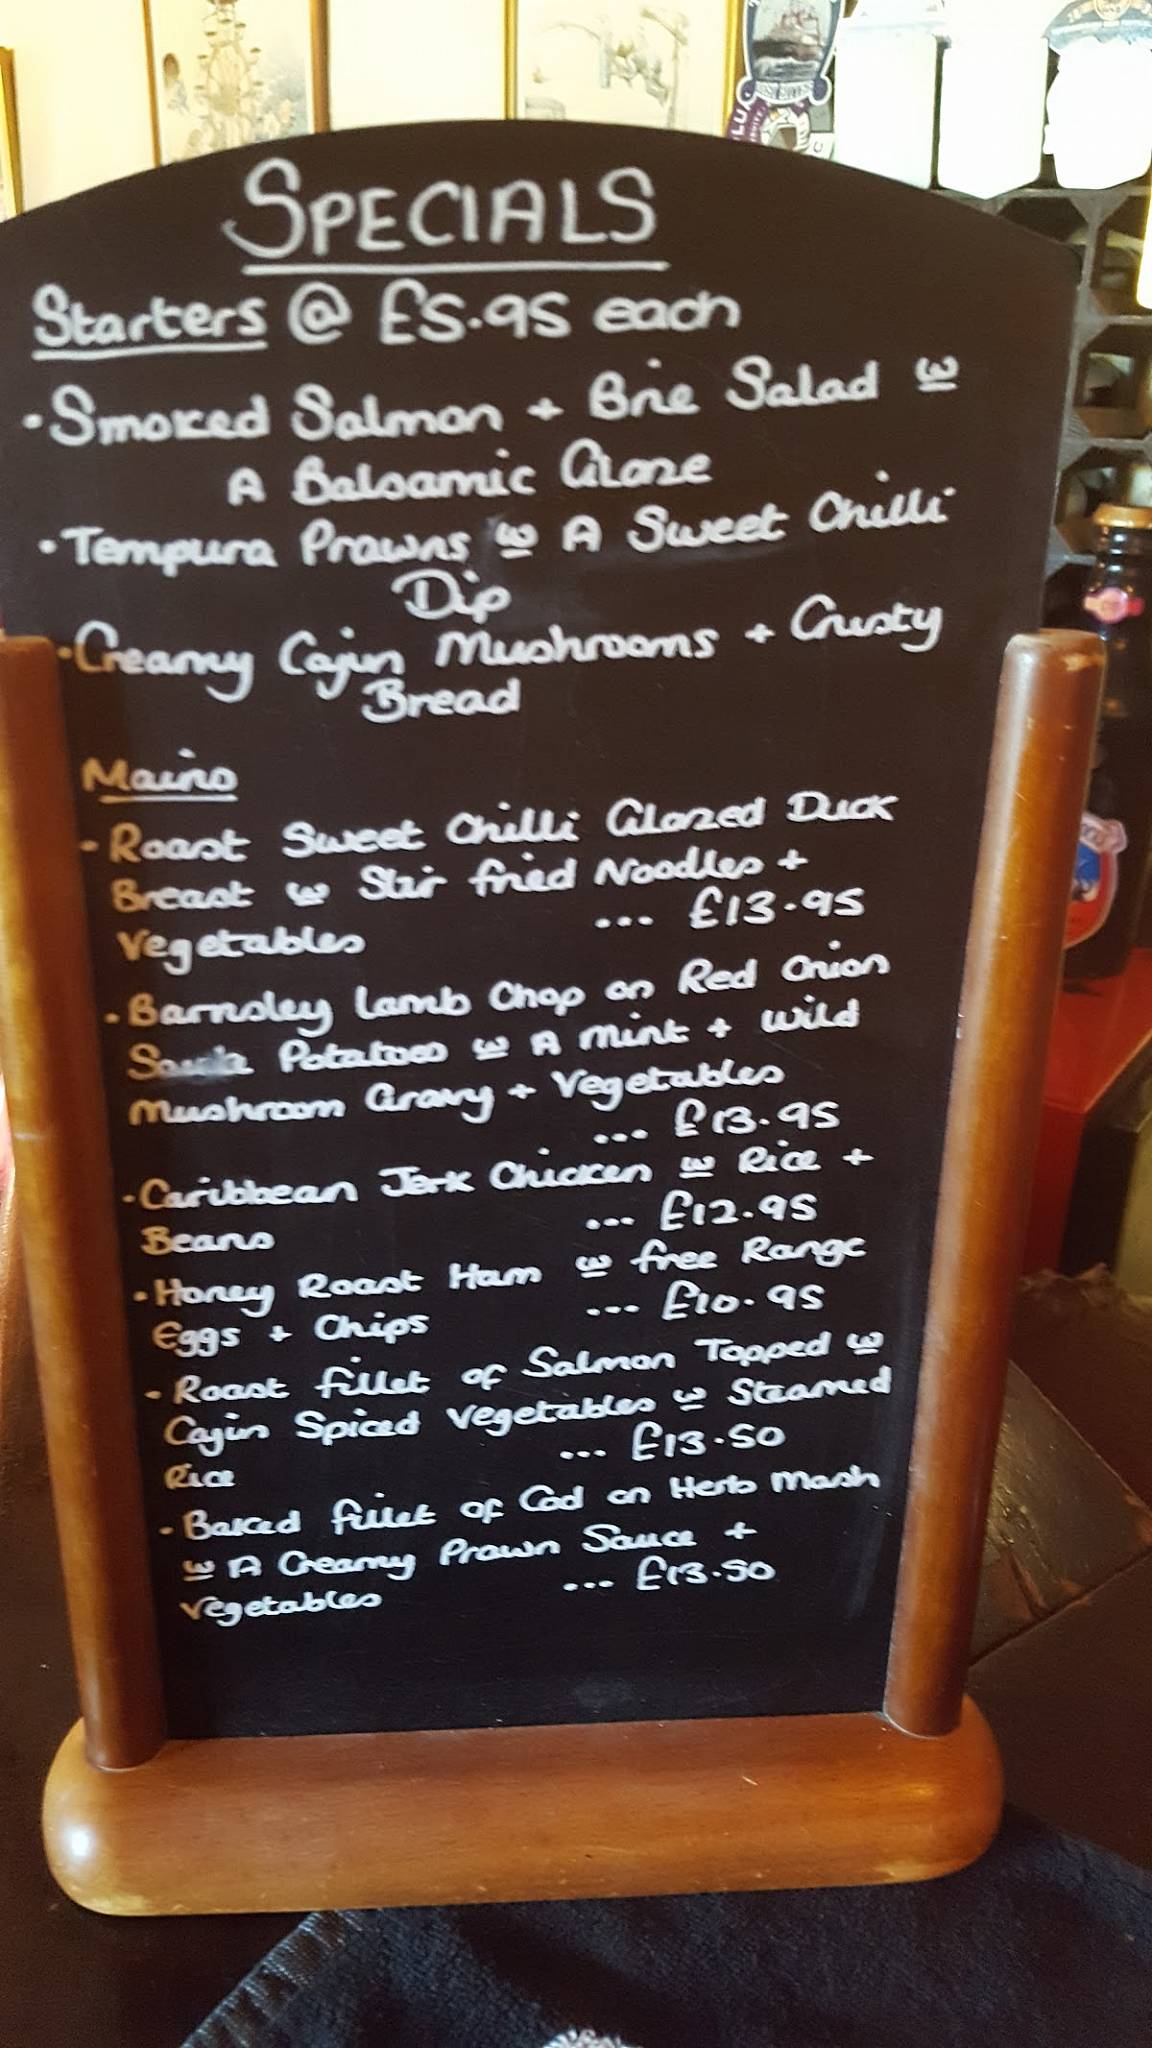 SPECIALS
Starters @ £5.95 each
• Smoked Salmon + Brie Salad w
A Balsamic Glaze
• Tempura Prawns w A Sweet Chilli
Dip
• Creamy Cajun Mushrooms + Crusty
Bread
Mains
• Roast Sweet Chilli Glazed Duck
Breast w Stir fried Noodles +
Vegetables ... £13.95
• Barnsley Lamb Chop on Red Onion
Potatoes w A Mint + Wild
Mushroom Gravy + Vegetables
... £13.95
• Caribbean Jerk Chicken w Rice +
Beans ... £12.95
• Honey Roast Ham w free Range
Eggs + Chips ... £10.95
• Roast fillet of Salmon Topped w
Cajin Spiced Vegetables w Steamed
Rice ... £13.50
• Baked fillet of Cod on Herb Mash
w A Creamy Prawn Sauce +
Vegetables ... £13.50